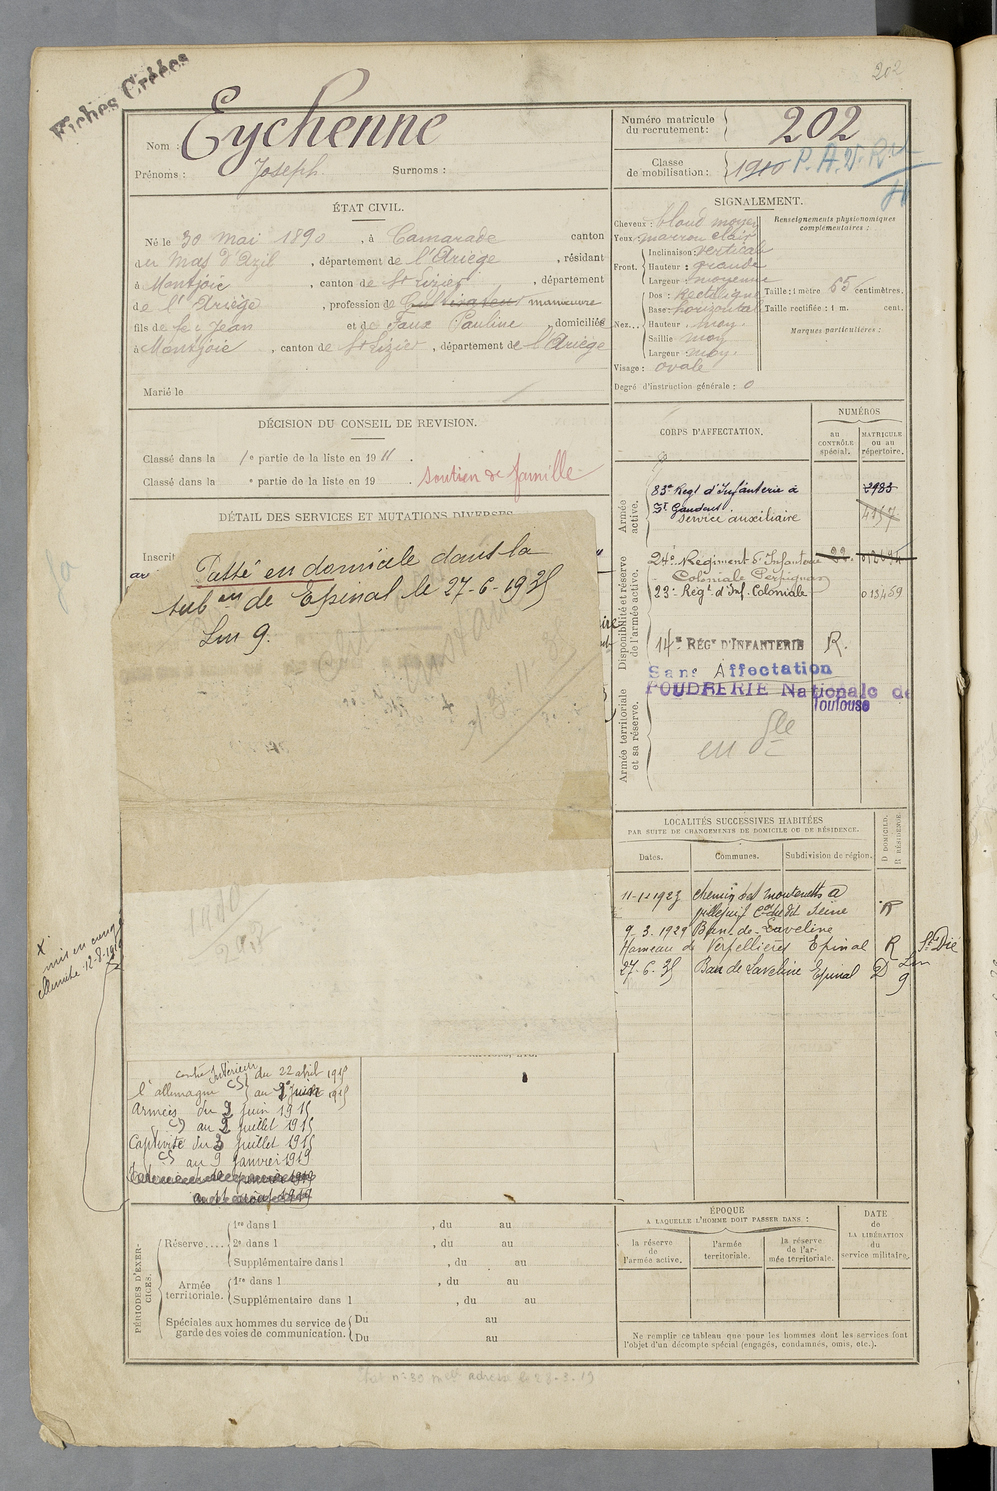 202
Fiches Créées
Nom : Eychenne
Prénoms : Joseph Surnoms :
Numéro matricule du recrutement : 202
Classe de mobilisation : 1910 P.A.V.
ÉTAT CIVIL.
Né le 30 mai 1890, à Camarade canton
du Mas d'Azil, département de l'Ariège, résidant
à Montjoie, canton de St Lizier, département
de l'Ariège, profession de Cultivateur manœuvre
fils de Jean et de Faur Pauline, domiciliés
à Montjoie, canton de St Lizier, département de l'Ariège
Marié le
SIGNALEMENT.
Cheveux : blond moyen
Yeux : marron clair
Front. Inclinaison : verticale
Hauteur : grande
Largeur : moyenne
Nez... Dos : Rectiligne
Base : horizontal
Hauteur : moy.
Saillie moy
Largeur moy.
Visage : ovale
Renseignements physionomiques complémentaires :
Taille : 1 mètre 65 centimètres.
Taille rectifiée : 1 m. cent.
Marques particulières :
Degré d'instruction générale : 0
DÉCISION DU CONSEIL DE REVISION.
Classé dans la 1e partie de la liste en 1911.
Classé dans la e partie de la liste en 19 . soutien de famille
DÉTAIL DES SERVICES ET MUTATIONS DIVERSES
Inscrit
Passé en domicile dans la
subon de Epinal le 27-6-1935
Ln 9.
CORPS D'AFFECTATION.
NUMÉROS
au CONTRÔLE spécial.
MATRICULE ou au répertoire.
Armée active.
83e Regt d'Infanterie à
St Gaudens
service auxiliaire
2983
4157
Disponibilité et réserve de l'armée active.
24e Régiment d'Infanterie
Coloniale Perpignan
23e Régt d'Inf. Coloniale 013459
14e RÉGT D'INFANTERIE R.
Sans Affectation
POUDRERIE Nationale de
Toulouse
Armée territoriale et sa réserve.
LOCALITÉS SUCCESSIVES HABITÉES
PAR SUITE DE CHANGEMENTS DE DOMICILE OU DE RÉSIDENCE.
Dates. Communes. Subdivision de région. D DOMICILE. R RÉSIDENCE.
11-1-1923 chemin des
Seine R
9. 3. 1929 Ban-de-Laveline
Hameau de Verpellières Epinal R St Dié
27-6-35 Ban de Laveline Epinal D Ln 9
X mis en congé
illimité 12-8-1919
contre Intérieur du 22 avril 1915
l'allemagne CS au 1er Juin 1915
Armées du 2 juin 1915
CS au 2 juillet 1915
Captivité du 3 juillet 1915
CS au 9 janvier 1919
PÉRIODES D'EXERCICES.
Réserve.... 1re dans l , du au
2e dans l , du au
Supplémentaire dans l , du au
Armée territoriale. 1re dans l , du au
Supplémentaire dans l , du au
Spéciales aux hommes du service de garde des voies de communication. Du au
Du au
ÉPOQUE
A LAQUELLE L'HOMME DOIT PASSER DANS :
la réserve de l'armée active.
l'armée territoriale.
la réserve de l'armée territoriale.
DATE de LA LIBÉRATION du service militaire.
Ne remplir ce tableau que pour les hommes dont les services font
l'objet d'un décompte spécial (engagés, condamnés, omis, etc.).